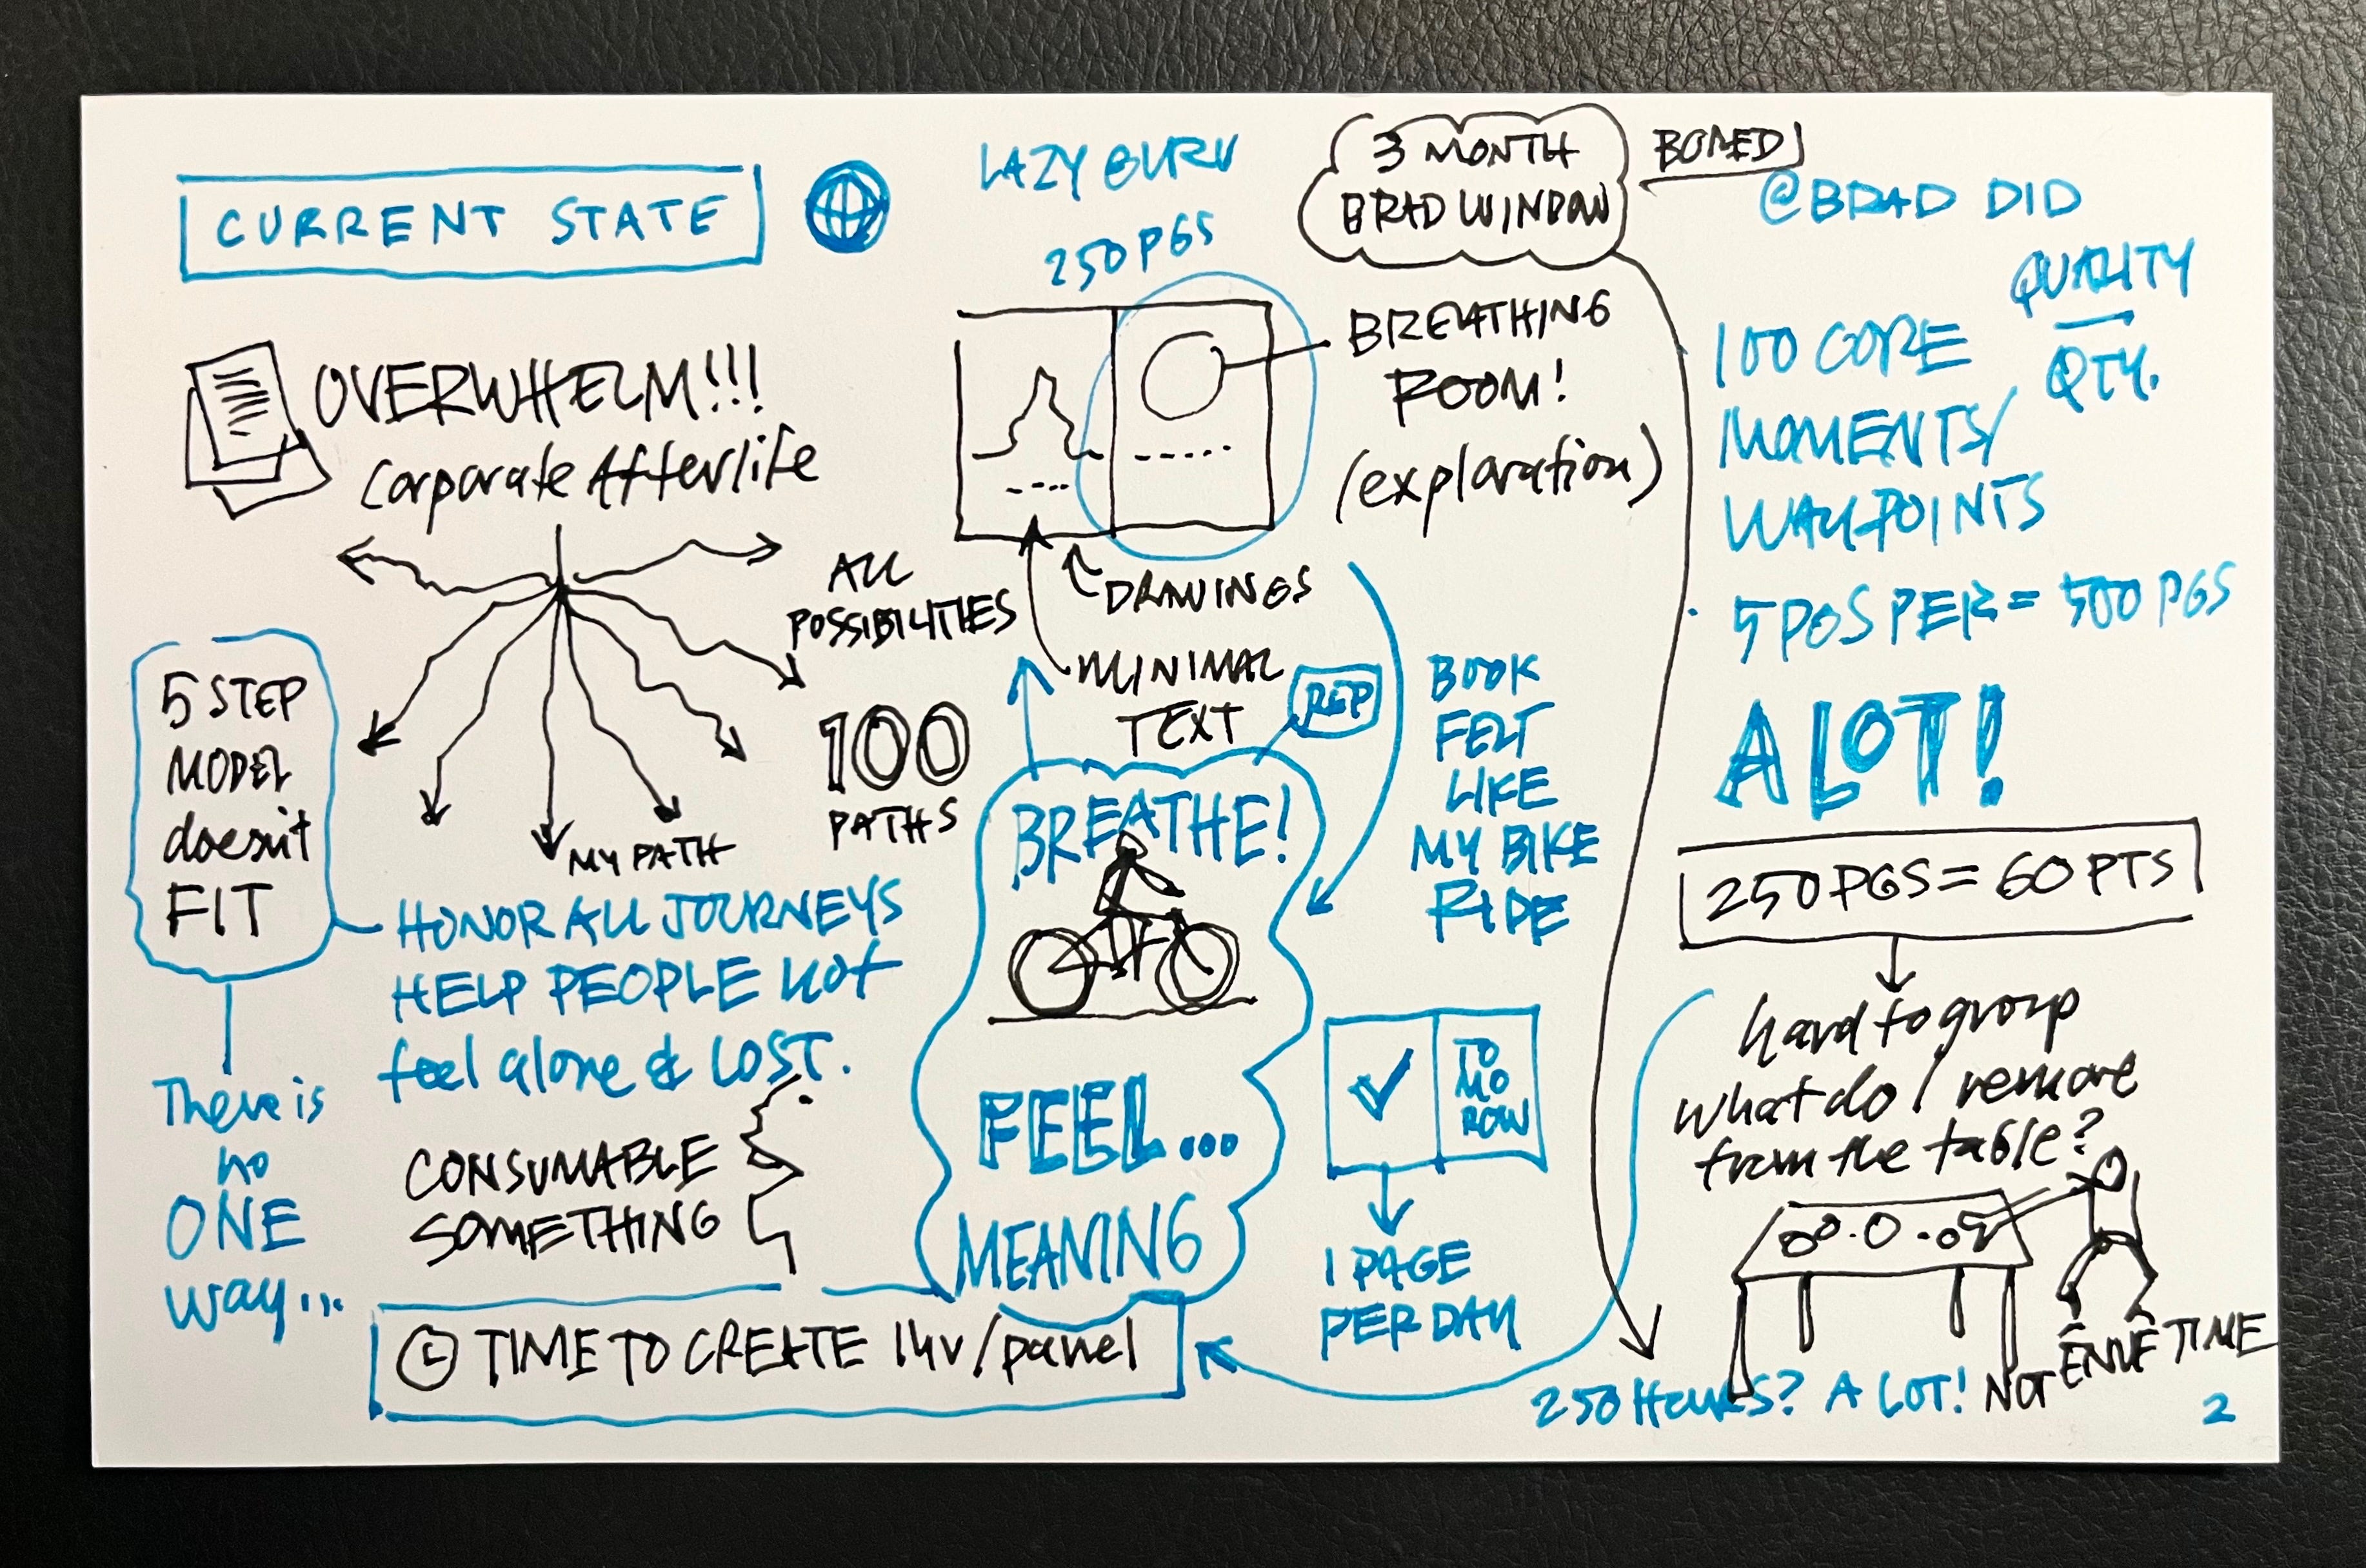 CURRENT STATE
OVERWHELM!!!
Corporate Afterlife
ALL
POSSIBILITIES
100
PATHS
MY PATH
5 STEP
MODEL
doesn't
FIT
HONOR ALL JOURNEYS
HELP PEOPLE not
feel alone & LOST.
There is
no
ONE
way...
CONSUMABLE
SOMETHING
TIME TO CREATE 1hr/panel
LAZY GURU
250 PGS
BREATHING
ROOM!
(exploration)
DRAWINGS
MINIMAL
TEXT
REP
BREATHE!
FEEL...
MEANING
BOOK
FELT
LIKE
MY BIKE
RIDE
TO
MO
ROW
1 PAGE
PER DAY
3 MONTH
BRAD WINDOW
BORED
@BRAD DID
QUALITY
QTY.
100 CORE
MOMENTS/
WAYPOINTS
5 PGS PER = 500 PGS
A LOT!
250 PGS = 60 PTS
hard to group
what do I remove
from the table?
250 HOURS? A LOT! NOT ENUF TIME
2